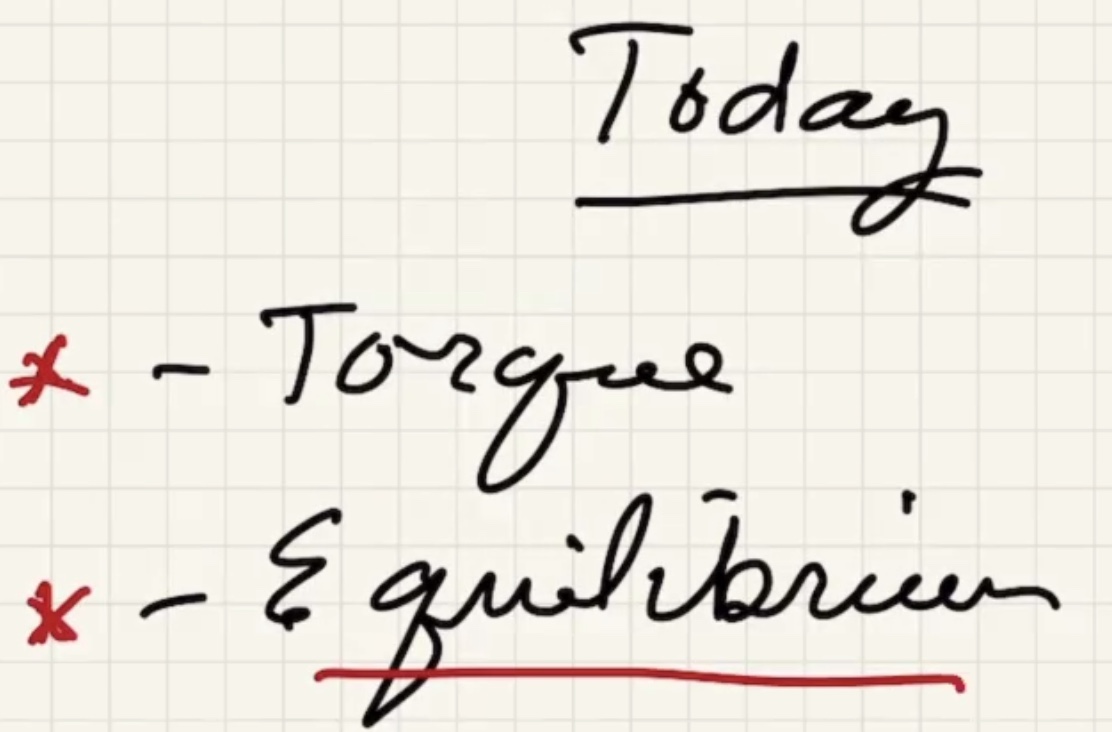 Today
* - Torque
* - Equilibrium